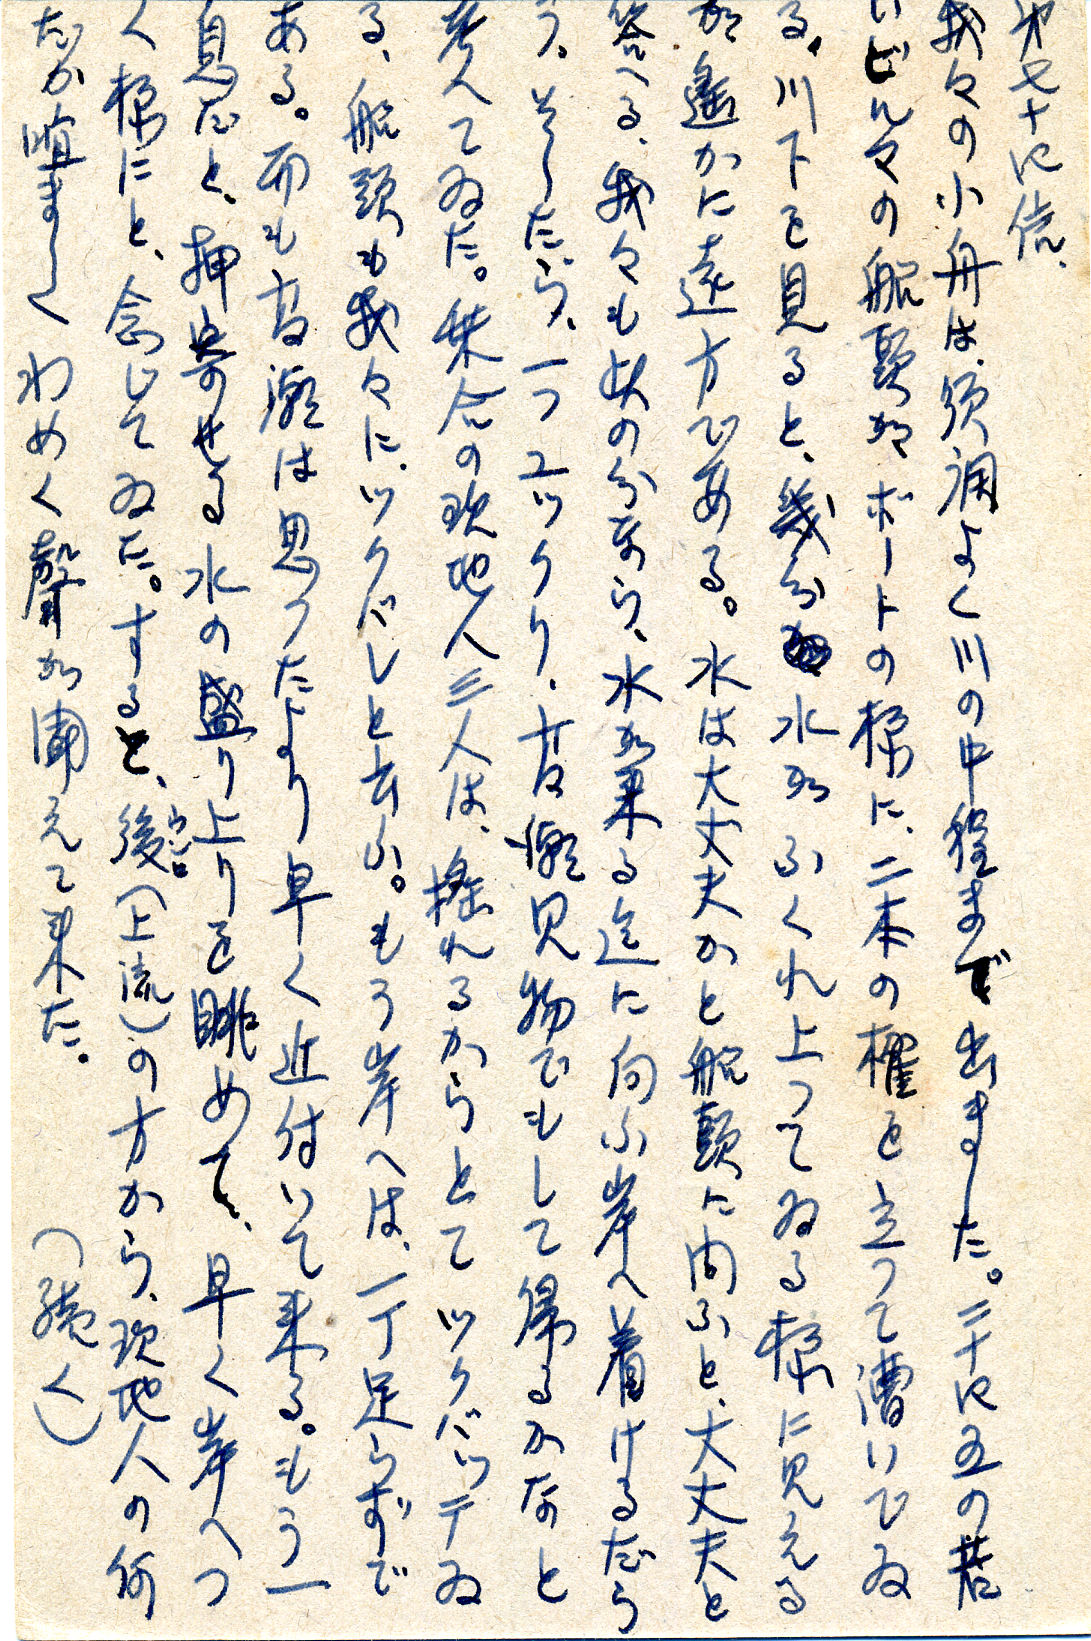 第七十四信.
我々の小舟は、順調よく川の中程まで出ました。二十四五の若
いビルマの船頭がボートの様に、二本の櫂を立って漕いでゐ
る。川下を見ると、幾分水がふくれ上ってゐる様に見える
が遙かに遠方である。水は大丈夫かと船頭に問ふと、大丈夫と
答へる、我々も此の分なら、水が来る迄に向ふ岸へ着けるだら
う。そしたら、一つユックリ、高潮見物でもして帰るかなと
考へてゐた。乗合の現地人三人は、揺れるからとてツクバッテゐ
る、船頭も我々に、ツクバレと云ふ。もう岸へは、一丁足らずで
ある。而も高潮は思ったより早く近付いて来る。もう一
息だと、押寄せる水の盛り上りを眺めて、早く岸へつ
く様にと、念じてゐた。すると、後ウシロ(上流)の方から、現地人の何
だか喧ましくわめく聲が聞えて来た。 (続く)